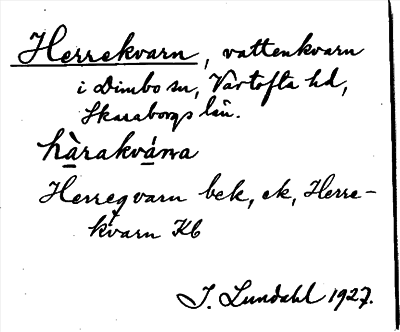 Herrekvarn, vattenkvarn
i Dimbo sn, Vartofta hd,
Skaraborgs län.
hàrakvána
Herreqvarn bek, ek, Herre-
kvarn Kb
I. Lundahl 1927.